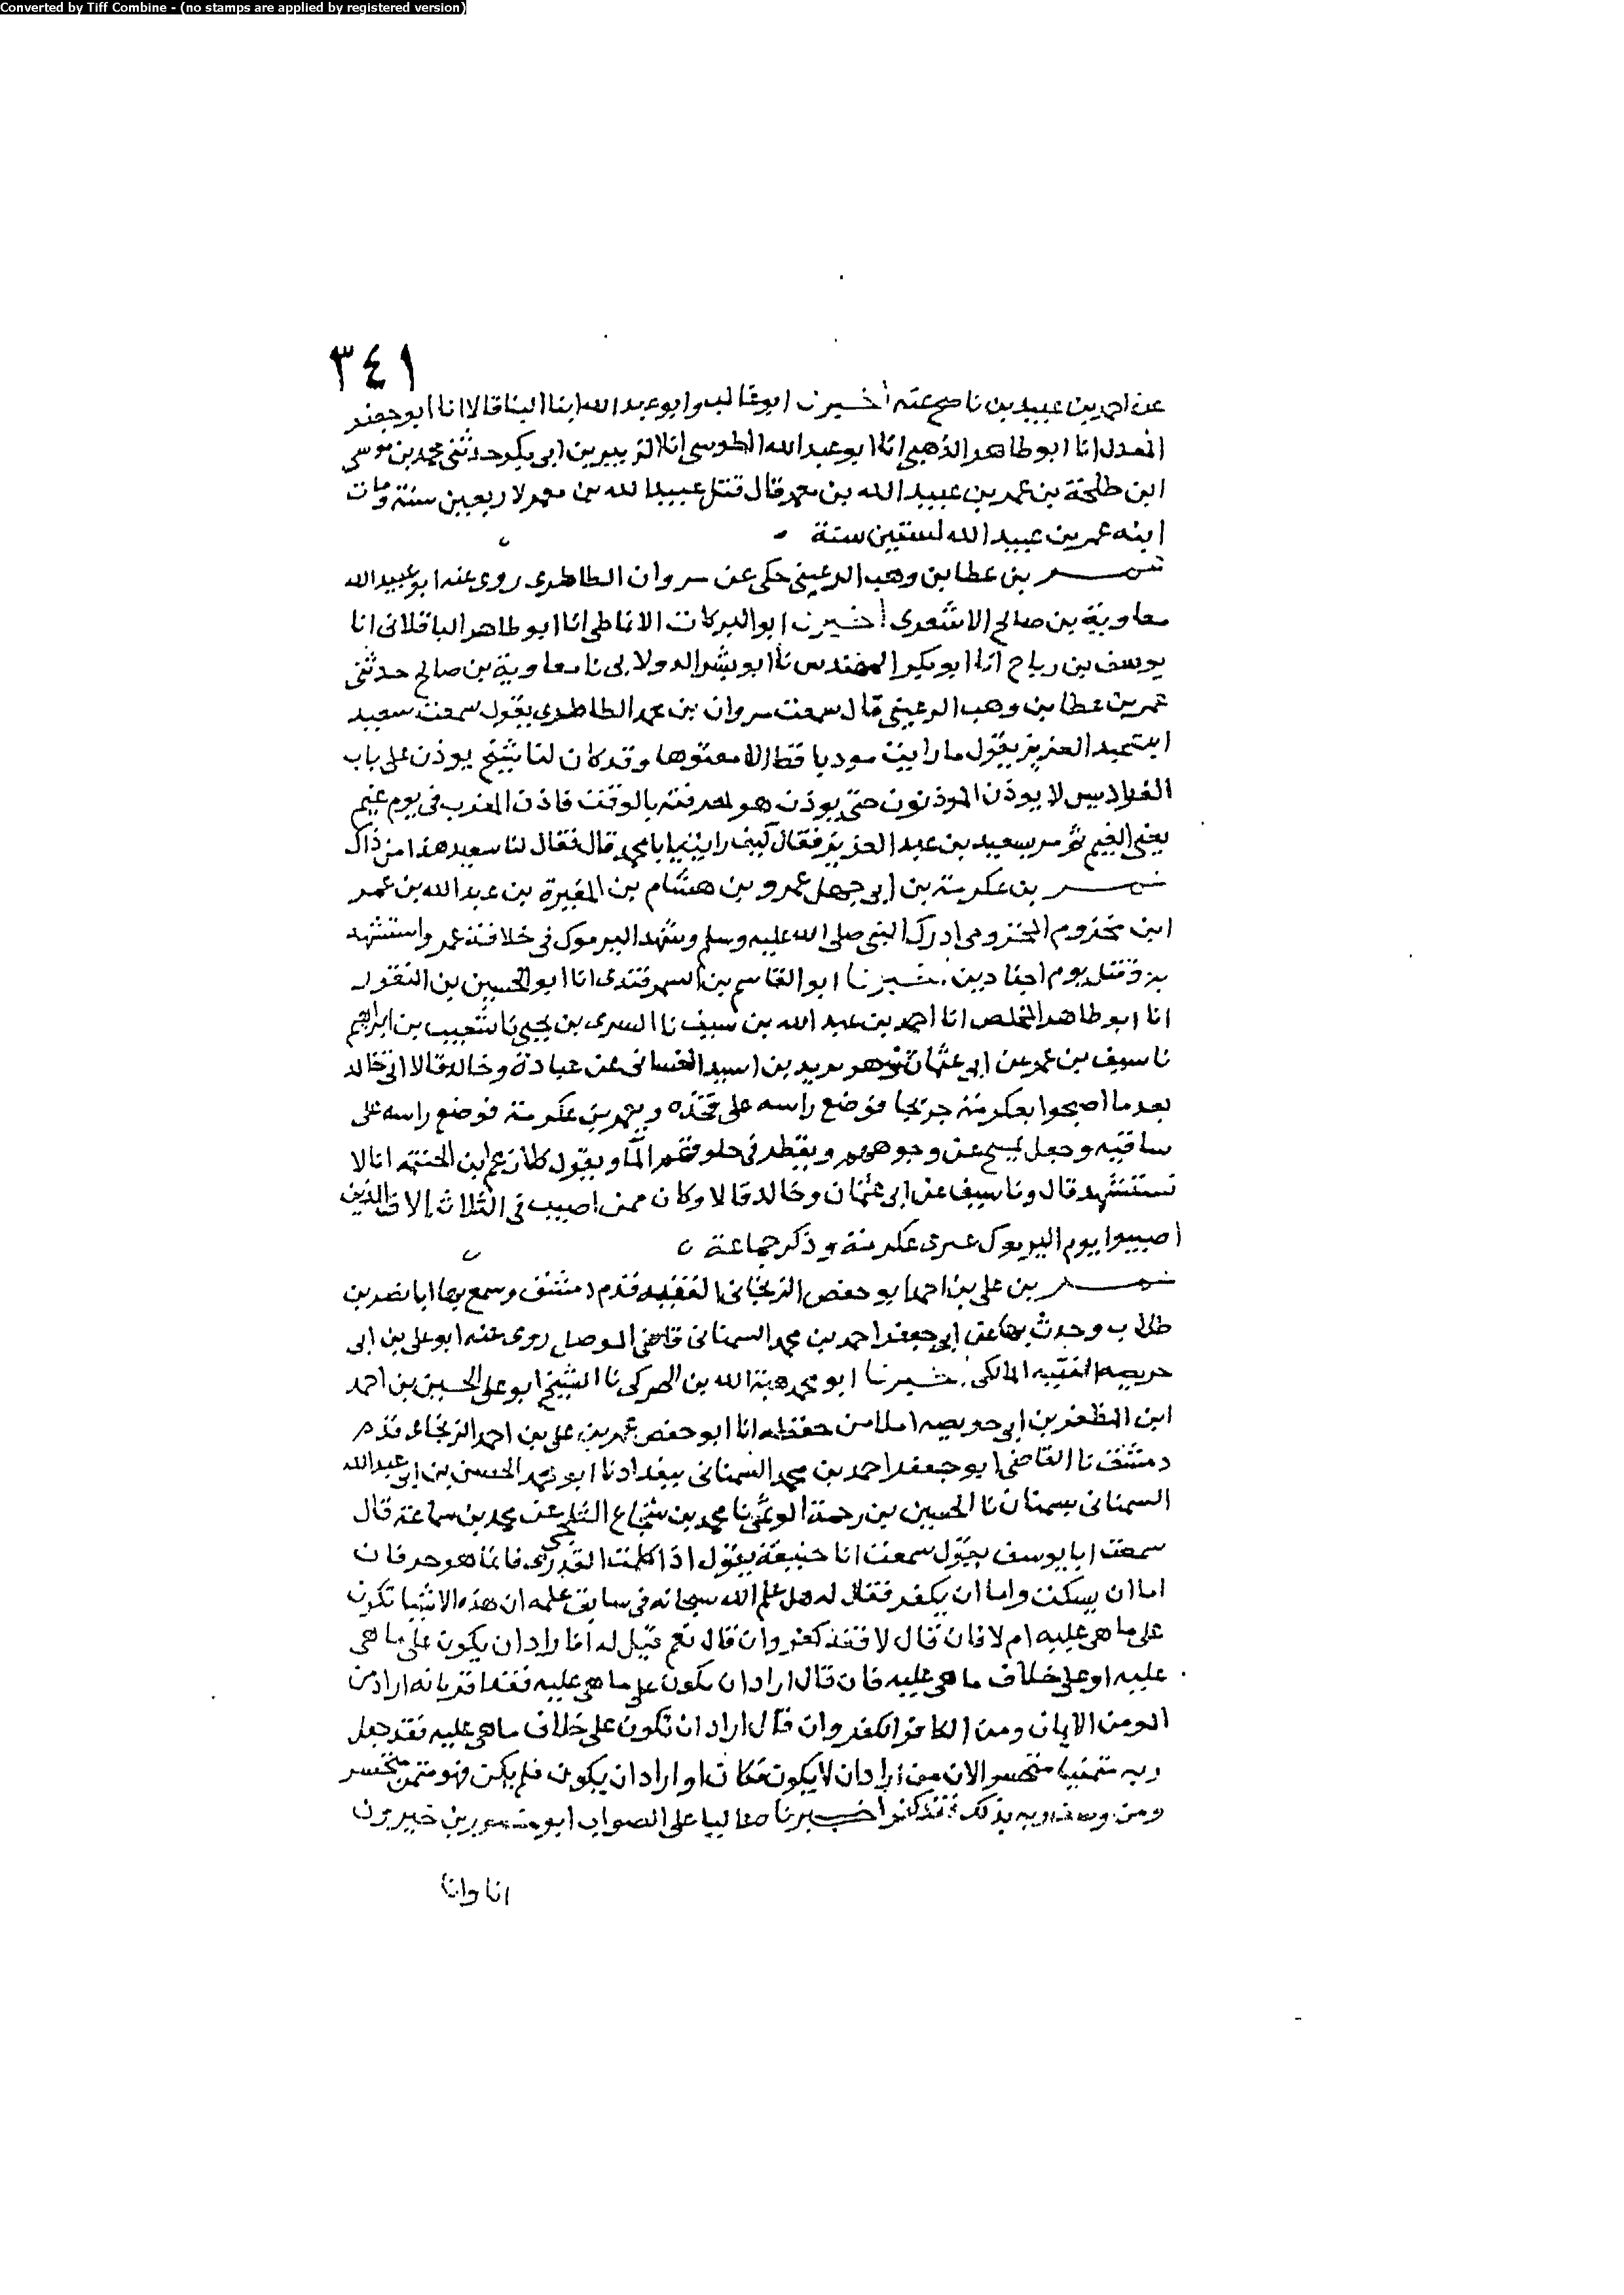 Converted by Tiff Combine - (no stamps are applied by registered version)
٣٤١
عن احمد بن عبيد بن ناصح عنه أخبرنا ابو غالب وابو عبد الله ابنا البنا قالا انا ابو جعفر
المعدل انا ابو طاهر الذهبي انا ابو عبد الله الطوسي انا الزبير بن ابي بكر حدثني محمد بن موسى
ابن طلحة بن عمر بن عبيد الله بن معمر قال قتل عبيد الله بن معمر لاربعين سنة ومات
ابنه عمر بن عبيد الله لستين سنة
عمر بن عطا بن وهب الرعيني حكى عن مروان الطاطري روى عنه ابو عبيد الله
معاوية بن صالح الاشعري أخبرنا ابو البركات الانماطي انا ابو طاهر الباقلاني انا
يوسف بن رباح انا ابو بكر المهندس نا ابو بشر الدولابي نا معاوية بن صالح حدثني
عمر بن عطا بن وهب الرعيني قال سمعت مروان بن محمد الطاطري يقول سمعت سعيد
ابن عبد العزيز يقول ما رايت موذنا قط الا معتوها وقد كان لنا شيخ يوذن على باب
الفراديس لا يوذن الموذنون حتى يوذن هو لمعرفته بالوقت فاذن المغرب في يوم غيم
يعني الغيم ثم مر بسعيد بن عبد العزيز فقال كيف رايتني يا با محمد قال فقال لنا سعيد هذا من ذاك
عمر بن عكرمة بن ابي جهل عمرو بن هشام بن المغيرة بن عبد الله بن عمر
ابن مخزوم المخزومي ادرك النبي صلى الله عليه وسلم وشهد اليرموك في خلافة عمر واستشهد
به وقتل يوم اجنادين أخبرنا ابو القاسم بن السمرقندي انا ابو الحسين بن النقور
انا ابو طاهر المخلص انا احمد بن عبد الله بن سيف نا السري بن يحيى نا شعيب بن ابراهيم
نا سيف بن عمر عن ابي عثمان وهو يزيد بن اسيد الغساني عن عبادة وخالد قالا اتى خالد
بعد ما اصبحوا بعكرمة جريحا فوضع راسه على فخذه وبعمر بن عكرمة فوضع راسه على
ساقيه وجعل يمسح عن وجوههم ويقطر في حلوقهم الماء ويقول كلا زعم ابن الحنتمه انا لا
نستشهد قال ونا سيف عن ابي عثمان وخالد قالا وكان ممن اصيب في الثلاث الاف الذين
اصيبوا يوم اليرموك عمرو عكرمة وذكر جماعة
عمر بن علي بن احمد ابو حفص الزنجاني الفقيه قدم دمشق وسمع بها ابا نصر بن
طلاب وحدث بها عن ابي جعفر احمد بن محمد السمناني قاضي الموصل روى عنه ابو علي بن ابي
حريصه الفقيه المالكي أخبرنا ابو محمد هبة الله بن الاكفاني نا الشيخ ابو علي الحسين بن احمد
ابن المظفر بن ابي حريصه املا من حفظه انا ابو حفص عمر بن علي بن احمد الزنجاني قدم
دمشق نا القاضي ابو جعفر احمد بن محمد السمناني ببغداد نا ابو محمد الحسن بن ابي عبد الله
السمناني بسمنان نا الحسين بن رحمة الويمي نا محمد بن شجاع الثلجي عن محمد بن سماعة قال
سمعت ابا يوسف يقول سمعت ابا حنيفة يقول اذا كلمت القدري فانما هو حرفان
اما ان يسكت واما ان يكفر فقال له هل علم الله سبحانه في سابق علمه ان هذه الاشيا تكون
على ما هي عليه ام لا فان قال لا فقد كفر وان قال نعم قيل له افاراد ان يكون على ما هي
عليه او على خلاف ما هي عليه فان قال اراد ان تكون على ما هي عليه فقد اقر بانه اراد من
المومن الايمان ومن الكافر الكفر وان قال اراد ان تكون على خلاف ما هي عليه فقد جعل
ربه متمنيا متحسرا لان من اراد ان لا يكون فكان او اراد ان يكون فلم يكن فهو متمن متحسر
ومن وصف ربه بذلك فقد كفر أخبرنا عاليا على الصواب ابو منصور بن خيرون
انا وانا